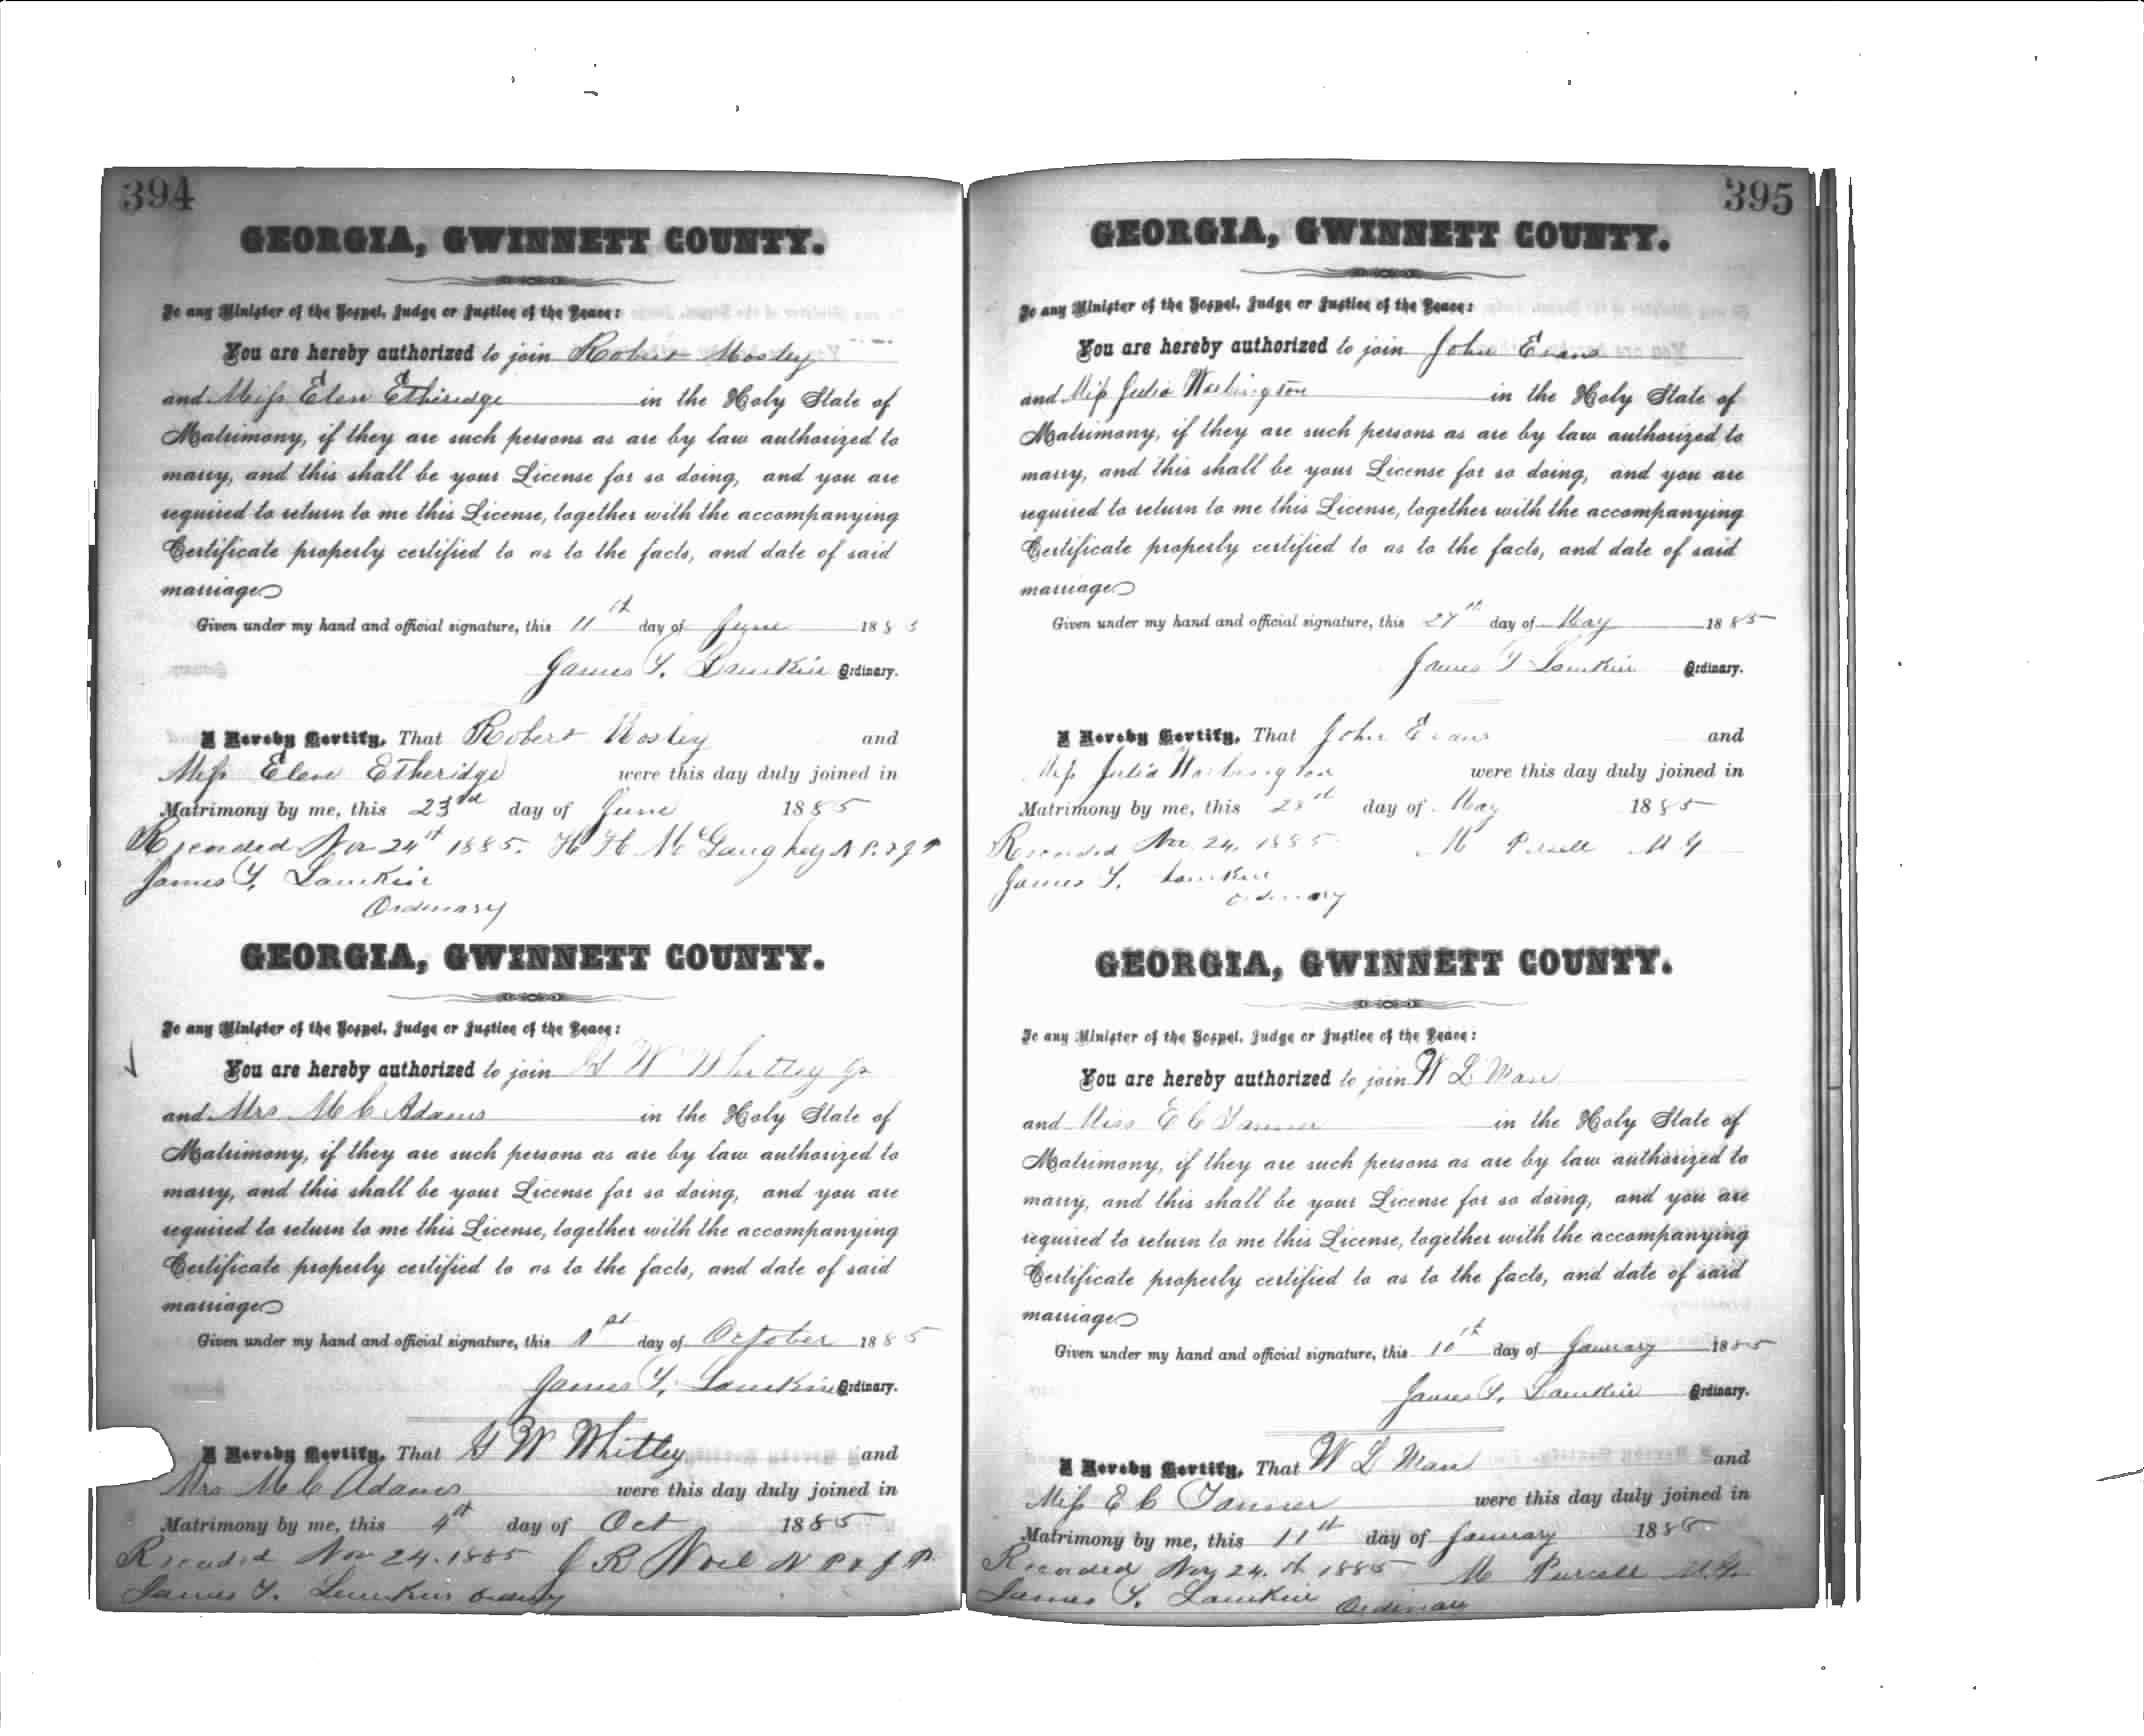 394
GEORGIA, GWINNETT COUNTY.
To any Minister of the Gospel, Judge or Justice of the Peace:
You are hereby authorized to join Robert Mosley
and Miss Elen Etheridge in the Holy State of
Matrimony, if they are such persons as are by law authorized to
marry, and this shall be your License for so doing, and you are
required to return to me this License, together with the accompanying
Certificate properly certified to as to the facts, and date of said
marriage
Given under my hand and official signature, this 11th day of June 1885
James T. Lamkin Ordinary.
I Hereby Certify, That Robert Mosley and
Miss Elen Etheridge were this day duly joined in
Matrimony by me, this 23rd day of June 1885
Recorded Nov 24th 1885. H H McGaughey N P. & J P
James T. Lamkin
Ordinary
GEORGIA, GWINNETT COUNTY.
To any Minister of the Gospel, Judge or Justice of the Peace:
You are hereby authorized to join G W Whitley Jr
and Mrs M C Adams in the Holy State of
Matrimony, if they are such persons as are by law authorized to
marry, and this shall be your License for so doing, and you are
required to return to me this License, together with the accompanying
Certificate properly certified to as to the facts, and date of said
marriage
Given under my hand and official signature, this 1st day of October 1885
James T. Lamkin Ordinary.
I Hereby Certify, That G W Whitley and
Mrs M C Adams were this day duly joined in
Matrimony by me, this 4th day of Oct 1885
Recorded Nov 24. 1885 J R Noel N P & J P.
James T. Lamkin Ordinary
395
GEORGIA, GWINNETT COUNTY.
To any Minister of the Gospel, Judge or Justice of the Peace:
You are hereby authorized to join John Evans
and Miss Julia Washington in the Holy State of
Matrimony, if they are such persons as are by law authorized to
marry, and this shall be your License for so doing, and you are
required to return to me this License, together with the accompanying
Certificate properly certified to as to the facts, and date of said
marriage
Given under my hand and official signature, this 27th day of May 1885
James T Lamkin Ordinary.
I Hereby Certify, That John Evans and
Miss Julia Washington were this day duly joined in
Matrimony by me, this 28th day of May 1885
Recorded Nov 24, 1885 M Pursell M G
James T. Lamkin
Ordinary
GEORGIA, GWINNETT COUNTY.
To any Minister of the Gospel, Judge or Justice of the Peace:
You are hereby authorized to join W L Man
and Miss E C Tanner in the Holy State of
Matrimony, if they are such persons as are by law authorized to
marry, and this shall be your License for so doing, and you are
required to return to me this License, together with the accompanying
Certificate properly certified to as to the facts, and date of said
marriage
Given under my hand and official signature, this 10th day of January 1885
James T. Lamkin Ordinary.
I Hereby Certify, That W L Man and
Miss E C Tanner were this day duly joined in
Matrimony by me, this 11th day of January 1885
Recorded Nov 24.th 1885 M Pursell M.G.
James T. Lamkin Ordinary